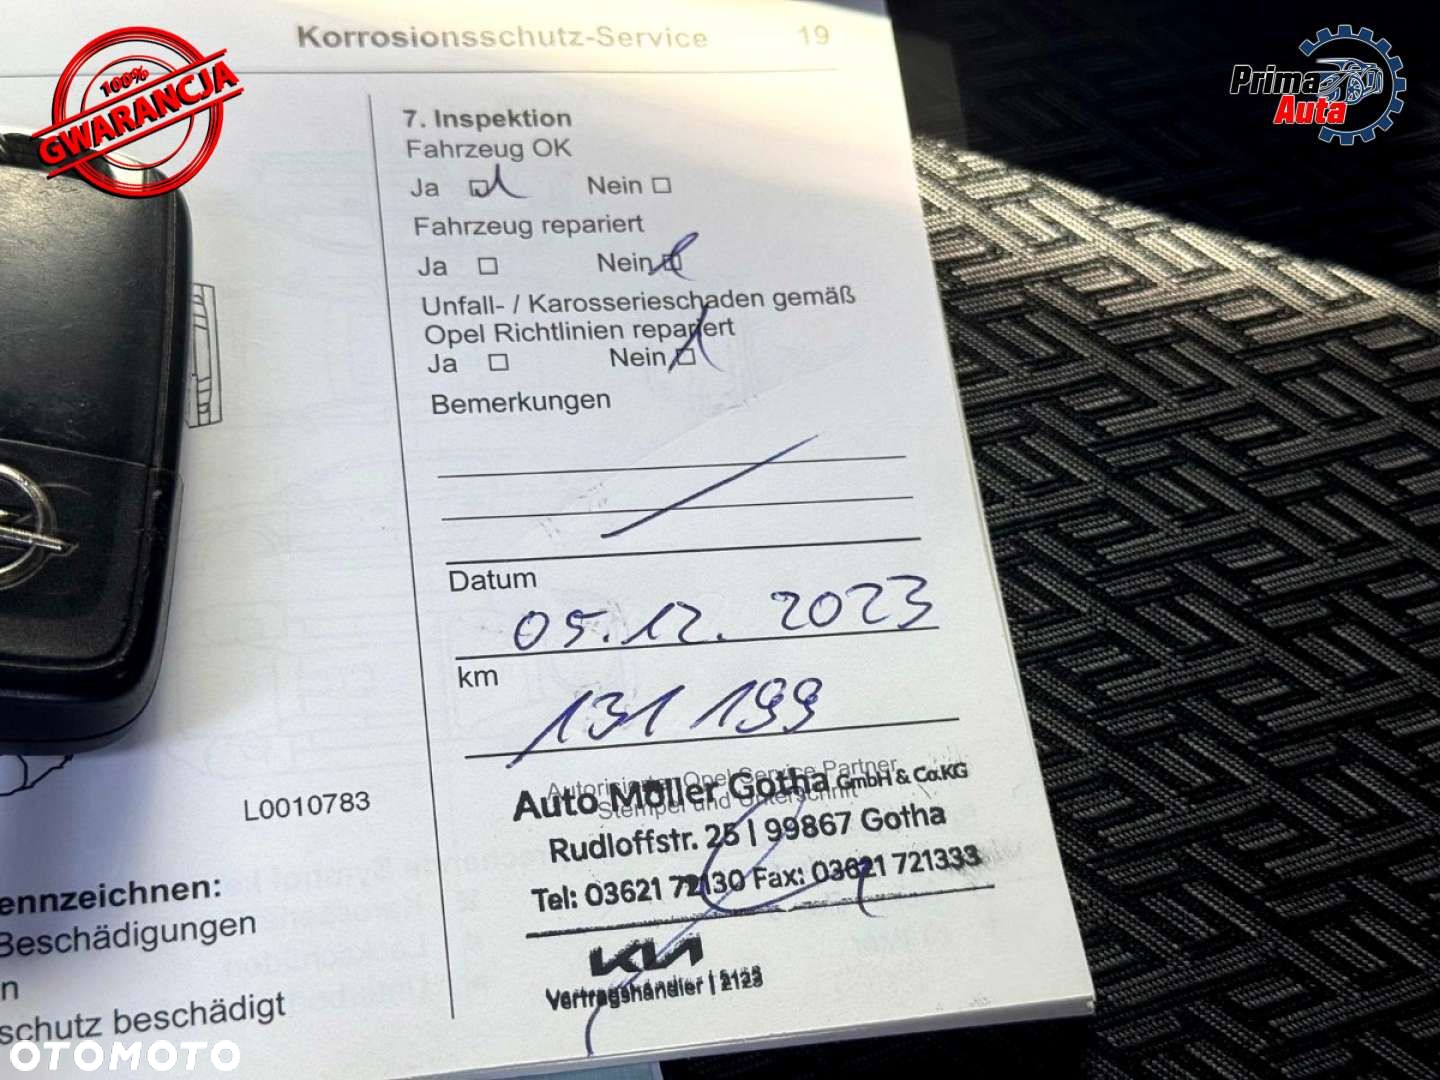 Korrosionsschutz-Service 19
100%
GWARANCJA
Prima
Auta
7. Inspektion
Fahrzeug OK
Ja Nein
Fahrzeug repariert
Ja Nein
Unfall- / Karosserieschaden gemäß
Opel Richtlinien repariert
Ja Nein
Bemerkungen
Datum
05.12.2023
km
131 199
Autorisierter Opel Service Partner
Stempel und Unterschrift
Auto Möller Gotha GmbH & Co.KG
Rudloffstr. 25 | 99867 Gotha
Tel: 03621 72130 Fax: 03621 721333
KIA
Vertragshändler | 2123
L0010783
ennzeichnen:
Beschädigungen
n
schutz beschädigt
OTOMOTO